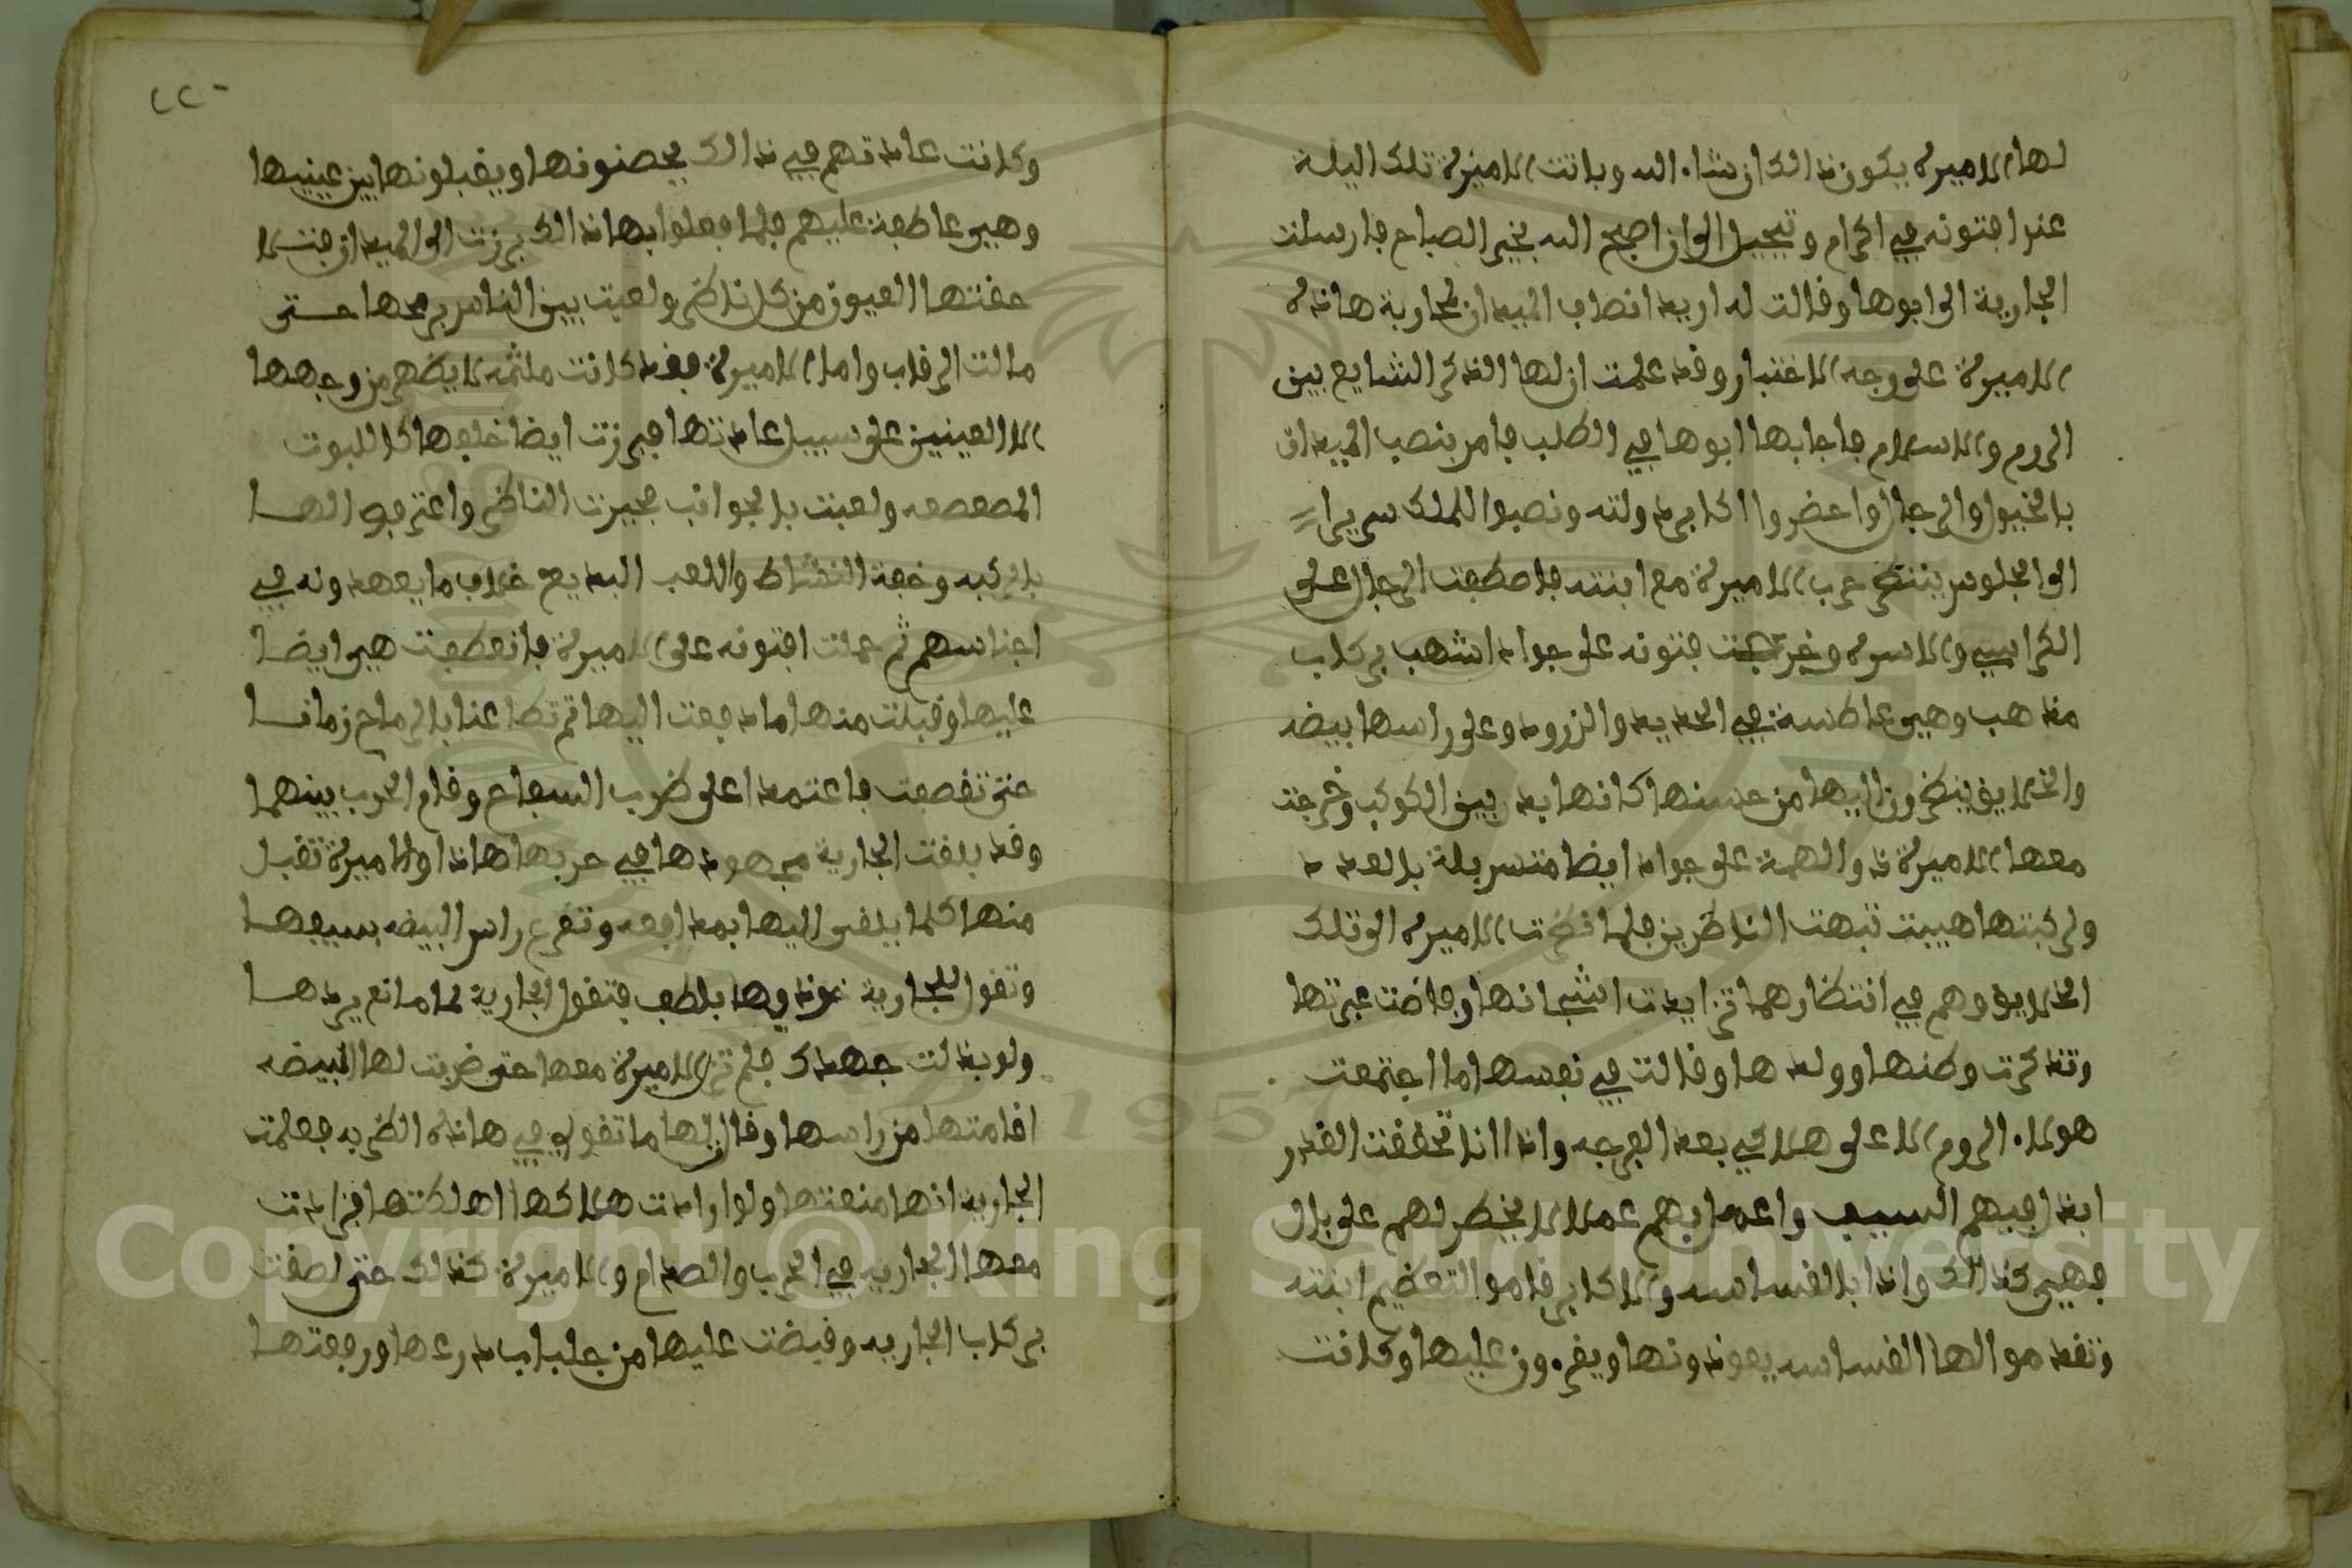 لها الاميرة يكون ذالك ان شاء الله وباتت الاميرة تلك اليلة
عند افتونه في اكرام وتبجيل الى ان اصبح الله بخير الصباح فارسلت
الجارية الى ابوها وقالت له اريد انصاب الميدان لمحاربة هاذه
الاميرة على وجه الاختبار وقد علمت ان لها الذكر الشايع بين
الروم والاسلام فاجابها ابوها في الطلب فامر بنصب الميدان
بالخيول والرجال واحضروا اكابر دولته ونصبوا للملك سريرا
الى الجلوس ينتظر حرب الاميرة مع ابنته فاصطفت الرجال على
الكراسي والاسرة وخرجت فتونه على جواد اشهب بركاب
مذهب وهي غاطسة في الحديد والزرود وعلى راسها بيضه
والخلايق ينظرون اليها من حسنها كانها بدر بين الكوكب وخرجت
معها الاميرة ذوالهمة على جواد ايضا متسربلة بالعدد
ولركبتها هيبت تبهت الناظرين فلما نظرت الاميرة الى تلك
الخلايق وهم في انتظارهما تزايدت اشجانها وفاضت عبرتها
وتذكرت وطنها وولدها وقالت في نفسها ما اجتمعت
هولاء الروم الا على هلاكي بعد الفرجه واذا انا تحققت الغدر
ابذل فيهم السيف واعمل بهم عملا لا يخطر لهم على بال
فهي كذالك واذا بالقساسه والاكابر قاموا لتعظيم ابنته
وتقدموا لها القساسه يعوذونها ويقرءون عليها وكانت
٢٢٠
وكانت عادتهم في ذالك يحضنونها ويقبلونها بين عينيها
وهي عاطفة عليهم فلما فعلوا بها ذالك برزت الى الميدان فتسلا
حفتها العيون من كل ناظر ولعبت بين الناس برمحها حتى
مالت الرقاب واما الاميرة فقد كانت ملثمه لا يظهر من وجهها
الا العينين على سبيل عادتها فبرزت ايضا خلفها كاللبوت
المصعصعه ولعبت بالجوانب فحيرت الناظر واعترفوا لها
بالركبه وخفة النشاط واللعب البديع خلاف ما يعهدونه في
اجناسهم ثم حملت افتونه على الاميرة فانعطفت هي ايضا
عليها وقبلت منها ما دفعت اليها ثم تطاعنا بالرماح زمانا
حتى تقصفت فاعتمدا على ضرب الصفاح وقام الحرب بينهما
وقد بلغت الجارية مجهودها في حربها هاذا والاميرة تقبل
منها كلما يلقى اليها بمدافعه وتقرع راس البيضه بسيفها
وتقول للجارية خوذيها بلطف فتقول الجارية لها مانع يردها
ولو بذلت جهدك فلم تزل الاميرة معها حتى ضربت لها البيضه
اقامتها من راسها وقالت لها ما تقولي في هاذه الضربه فعلمت
الجاريه انها منعتها ولو ارادت هلاكها اهلكتها فزادت
معها الجاريه في الحرب والصدام والاميرة كذالك حتى لصقت
بركاب الجاريه وقبضت عليها من جلباب درعها ورفعتها
Copyright © King Saud University
1957